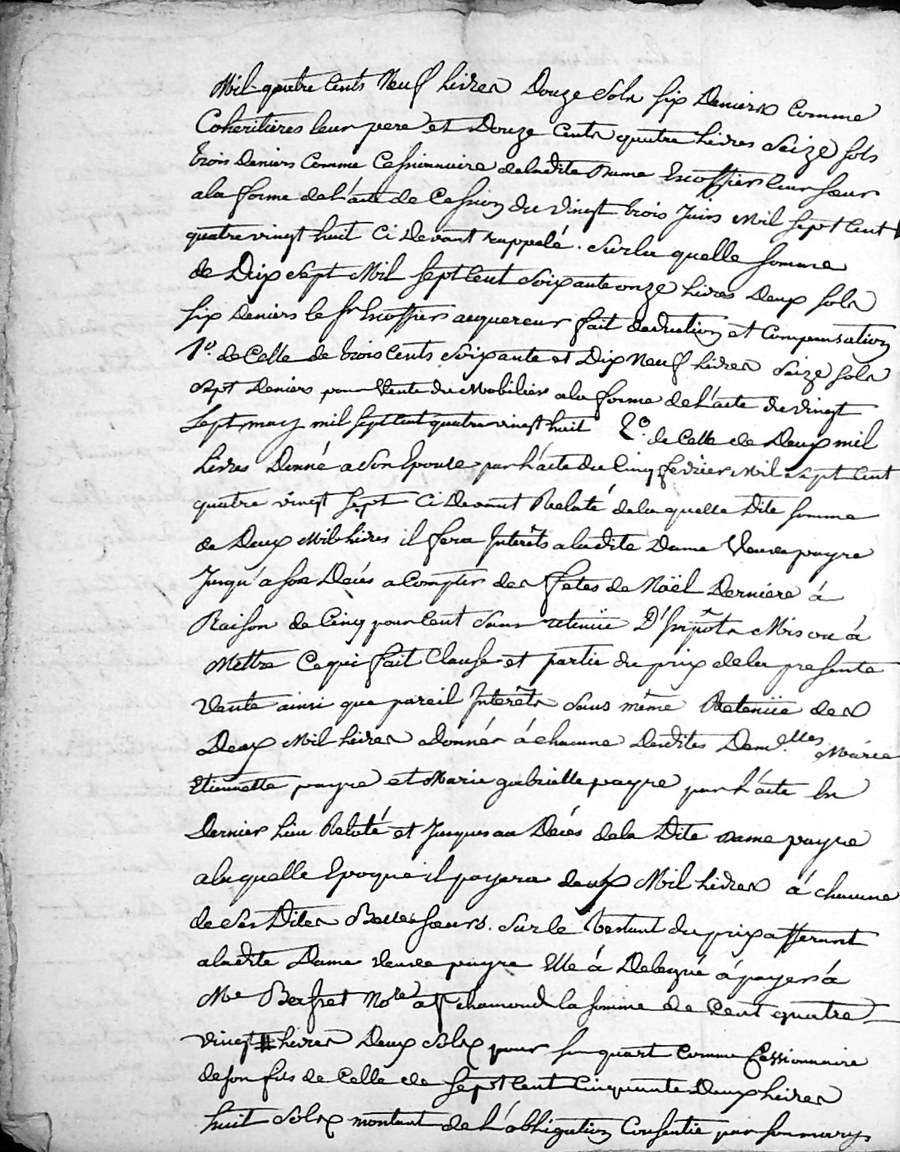 Mil quatre Cents Neuf Livres Douze Sols six Deniers Comme
Coheritières leur pere et Douze Cents quatre Livres Seize sols
trois Deniers Comme Cessionnaire deladite Dame Escoffier leur sœur
ala forme de L'acte de Cession du vingt trois Juin Mil sept Cent
quatre vingt huit Ci Devant rappelé. Surla quelle somme
de Dix Sept Mil sept Cent Soixante onze Livres Deux sols
six Deniers le Sr Escoffier acquereur fait deduction et Compensation
1º. de Celle de trois Cents Soixante et Dix Neuf Livres Seize sols
Sept Deniers pour Vente du Mobilier ala forme de L'acte du vingt
Sept mars mil sept Cent quatre vingt huit 2º. de Celle de Deux mil
Livres Donné a Son Epouse par L'acte du Cinq fevrier Mil Sept Cent
quatre vingt sept Ci Devant Relaté dela quelle Dite somme
de Deux Mil Livres il fera Interêts aladite Dame Veuve payre
Jusqu'a son Décés a Compter des fetes de Noël Derniere à
Raison de Cinq pour Cent Sans retenüe D'Impôts Mis ou à
Mettre Ce qui fait Clause et partie du prix dela presente
Vente ainsi que pareil Interêts Sans même Retenüe des
Deux Mil Livres adonnés à chacune Desdites Demelles Marie
Etiennette payre et Marie gabrielle payre par L'acte En
Dernier Lieu Relaté et Jusques au Décés dela Dite Dame payre
ala quelle Epoque il payera deux Mil Livres à chacune
de Ses Dites Belles sœurs. Sur le Restant du prix afferant
aladite Dame veuve payre Elle à Delegué à payer à
Me Nore a St chamond la somme de Cent quatre
vingt Livres Deux Sols pour son quart Comme Cessionnaire
de son fils de Celle de Sept Cent Cinquante Deux Livres
huit Sols montant de L'obligation Consentie par son mary